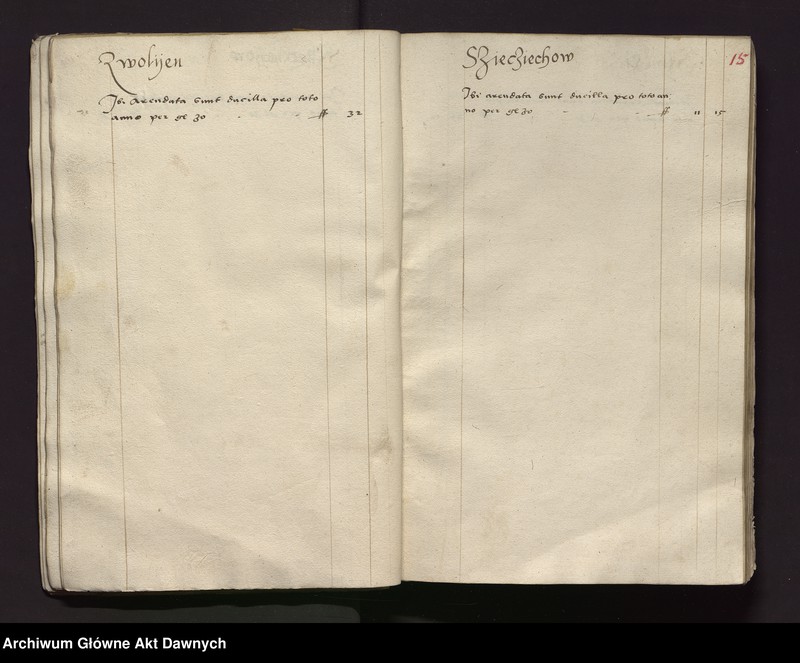 Zwolijen
Ibi arendata sunt ducilla pro toto
anno per gr 30 ff 32
15
Szieciechow
Ibi arendata sunt ducilla pro toto an
no per gr 30 ff 11 15
Archiwum Główne Akt Dawnych